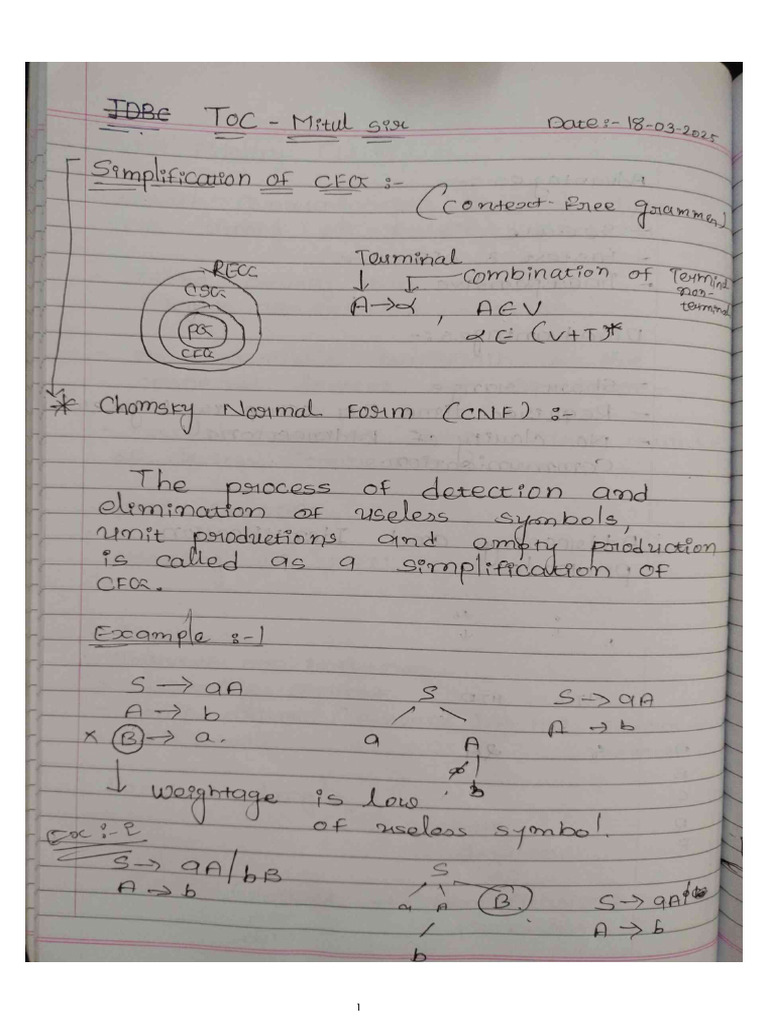 JDBC TOC - Mitul sir
Date:- 18-03-2025
Simplification of CFG :-
(Context-free grammer)
REC
CSG
RG
CFG
Terminal
combination of Terminal
non-
terminal
A → α , A ∈ V
α ∈ (V+T)*
* Chomsky Normal Form (CNF) :-
The process of detection and
elimination of useless symbols,
unit productions and empty production
is called as a simplification of
CFG.
Example :-1
S → aA
A → b
x B → a.
S
a A
b
S → aA
A → b
↓ weightage is low
of useless symbol.
Ex :- 2
S → aA/bB
A → b
S
a A B
b
S → aA
A → b
1